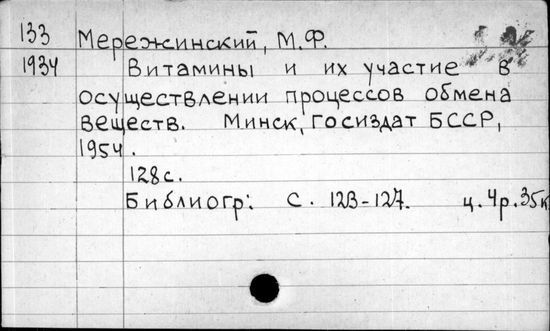 133 Мережинский, М.Ф.
1934 Витамины и их участие в
осуществлении процессов обмена
веществ. Минск, Госиздат БССР,
1954.
128с.
Библиогр: с. 123-127. ц.4р.35к